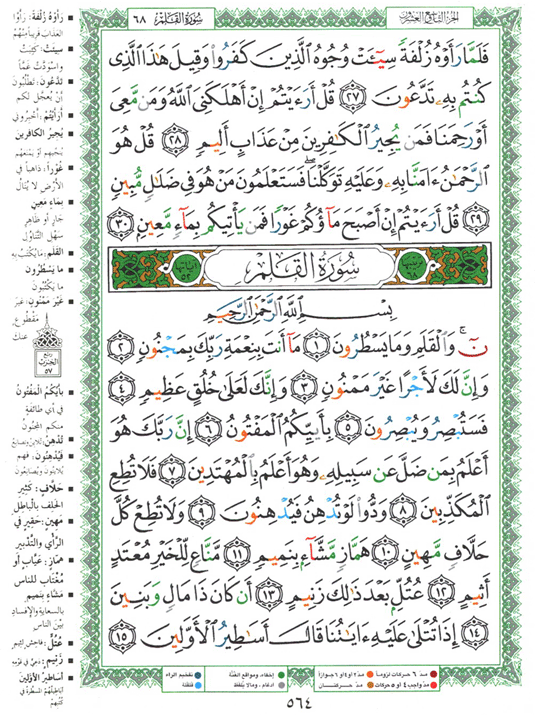 الجزء التاسع والعشرون
سُورَةُ القَلَم ٦٨
فَلَمَّا رَأَوْهُ زُلْفَةً سِيٓـَٔتْ وُجُوهُ ٱلَّذِينَ كَفَرُوا۟ وَقِيلَ هَـٰذَا ٱلَّذِى
كُنتُم بِهِۦ تَدَّعُونَ ٢٧ قُلْ أَرَءَيْتُمْ إِنْ أَهْلَكَنِىَ ٱللَّهُ وَمَن مَّعِىَ
أَوْ رَحِمَنَا فَمَن يُجِيرُ ٱلْكَـٰفِرِينَ مِنْ عَذَابٍ أَلِيمٍ ٢٨ قُلْ هُوَ
ٱلرَّحْمَـٰنُ ءَامَنَّا بِهِۦ وَعَلَيْهِ تَوَكَّلْنَا ۖ فَسَتَعْلَمُونَ مَنْ هُوَ فِى ضَلَـٰلٍ مُّبِينٍ
٢٩ قُلْ أَرَءَيْتُمْ إِنْ أَصْبَحَ مَآؤُكُمْ غَوْرًا فَمَن يَأْتِيكُم بِمَآءٍ مَّعِينٍۭ ٣٠
ترتيبها ٦٨ سُورَةُ القَلَمِ آياتها ٥٢
بِسْمِ ٱللَّهِ ٱلرَّحْمَـٰنِ ٱلرَّحِيمِ
نٓ ۚ وَٱلْقَلَمِ وَمَا يَسْطُرُونَ ١ مَآ أَنتَ بِنِعْمَةِ رَبِّكَ بِمَجْنُونٍ ٢
وَإِنَّ لَكَ لَأَجْرًا غَيْرَ مَمْنُونٍ ٣ وَإِنَّكَ لَعَلَىٰ خُلُقٍ عَظِيمٍ ٤
فَسَتُبْصِرُ وَيُبْصِرُونَ ٥ بِأَييِّكُمُ ٱلْمَفْتُونُ ٦ إِنَّ رَبَّكَ هُوَ
أَعْلَمُ بِمَن ضَلَّ عَن سَبِيلِهِۦ وَهُوَ أَعْلَمُ بِٱلْمُهْتَدِينَ ٧ فَلَا تُطِعِ
ٱلْمُكَذِّبِينَ ٨ وَدُّوا۟ لَوْ تُدْهِنُ فَيُدْهِنُونَ ٩ وَلَا تُطِعْ كُلَّ
حَلَّافٍ مَّهِينٍ ١٠ هَمَّازٍ مَّشَّآءٍۭ بِنَمِيمٍ ١١ مَّنَّاعٍ لِّلْخَيْرِ مُعْتَدٍ
أَثِيمٍ ١٢ عُتُلٍّۭ بَعْدَ ذَٰلِكَ زَنِيمٍ ١٣ أَن كَانَ ذَا مَالٍ وَبَنِينَ
١٤ إِذَا تُتْلَىٰ عَلَيْهِ ءَايَـٰتُنَا قَالَ أَسَـٰطِيرُ ٱلْأَوَّلِينَ ١٥
رَأَوْهُ زُلْفَةً: رأَوْا
العَذَابَ قَرِيباً مِنْهُمْ
سِيئَتْ: كَئِبَتْ
وَاسْوَدَّتْ غَمّاً
تَدَّعُونَ: تَطْلُبُونَ
أَنْ يُعَجَّلَ لَكُم
أَرَأَيْتُمْ: أَخْبِرُوني
يُجِيرُ الكافِرِين
يُنجيهم أو يمنعهم
غَوْراً: ذاهباً في
الأرْضِ لا يُنَالُ
بِمَاءٍ مَعِينٍ
جَارٍ أو ظاهِرٍ
سَهْلِ التَّناوُل
القَلَم: ما يُكْتَبُ بِه
ما يَسْطُرُون
ما يَكْتُبُون
غَيْرَ مَمْنُونٍ: غَيْرَ
مَقْطُوعٍ
عنك
ربع
الحزب
٥٧
بِأَيِّكُم المَفْتُونُ
في أي طائفةٍ
منكم المجنونُ
تُدْهِنُ: تلاين وتصانع
فَيُدْهِنُون: فهم
يلاينون ويصانعون
حَلَّافٍ: كَثِيرِ
الحَلِفِ بالباطِلِ
مَهِينٍ: حَقِيرٍ في
الرَّأْي والتَّدْبِيرِ
هَمَّازٍ: عَيَّابٍ أو
مُغْتَابٍ للناس
مَشَّاءٍ بِنَمِيمٍ
بالسعاية والإفساد
بَيْن الناس
عُتُلٍّ: فاحش لئيم
زَنِيمٍ: دعيٍّ في قومه
أساطيرُ الأوّلين
أباطيلهم المسطرة في
كتبهم
مدّ ٦ حركات لزوماً
مدّ ٢ أو ٤ أو ٦ جوازاً
مدّ واجب ٤ أو ٥ حركات
مدّ حركتان
إخفاء، ومواقع الغنّة
إدغام، وما لا يُلفظ
تفخيم الراء
قلقلة
٥٦٤